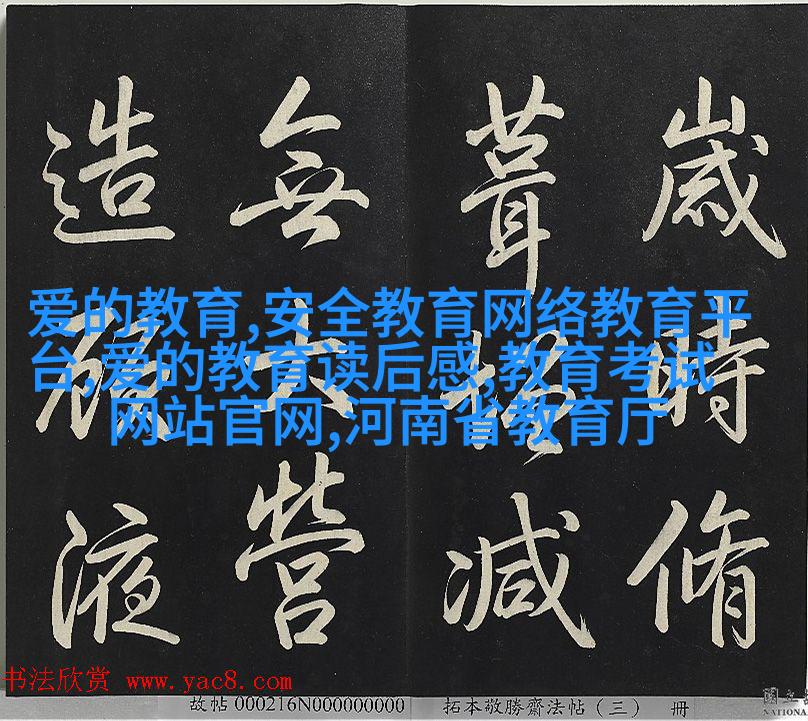 歲時脩
葺減
無大營
造液
爱的教育,安全教育网络教育平
台,爱的教育读后感,教育考试
网站官网,河南省教育厅
书法欣赏 www.yac8.com
故帖 000216N000000000 拓本敬勝齋法帖（三） 冊
國立
NATIONA